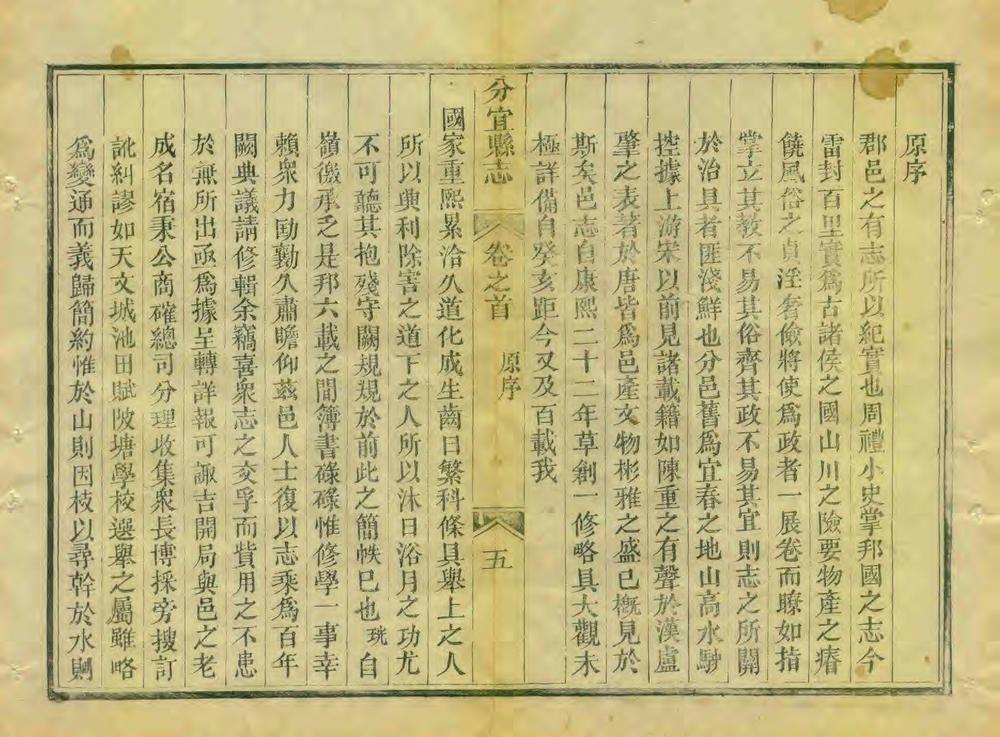 原序
郡邑之有志所以紀實也周禮小史掌邦國之志今
雷封百里實爲古諸侯之國山川之險要物產之瘠
饒風俗之貞淫奢儉將使爲政者一展卷而瞭如指
掌立其教不易其俗齊其政不易其宜則志之所關
於治具者匪淺鮮也分邑舊爲宜春之地山高水駛
控據上游宋以前見諸載籍如陳重之有聲於漢盧
肇之表著於唐皆爲邑產文物彬雅之盛已概見於
斯矣邑志自康熙二十二年草創一修略具大觀未
極詳備自癸亥距今又及百載我
分宜縣志
卷之首
原序
五
國家重熙累洽久道化成生齒日繁科條具舉上之人
所以興利除害之道下之人所以沐日浴月之功尤
不可聽其抱殘守闕規規於前此之簡帙已也珖自
嶺徼承乏是邦六載之間簿書碌碌惟修學一事幸
賴衆力勷勷久肅瞻仰茲邑人士復以志乘爲百年
闕典議請修輯余竊喜衆志之交孚而貲用之不患
於無所出亟爲據呈轉詳報可諏吉開局與邑之老
成名宿秉公商確總司分理收集衆長博採旁搜訂
訛糾謬如天文城池田賦陂塘學校選舉之屬雖略
爲變通而義歸簡約惟於山則因枝以尋幹於水則